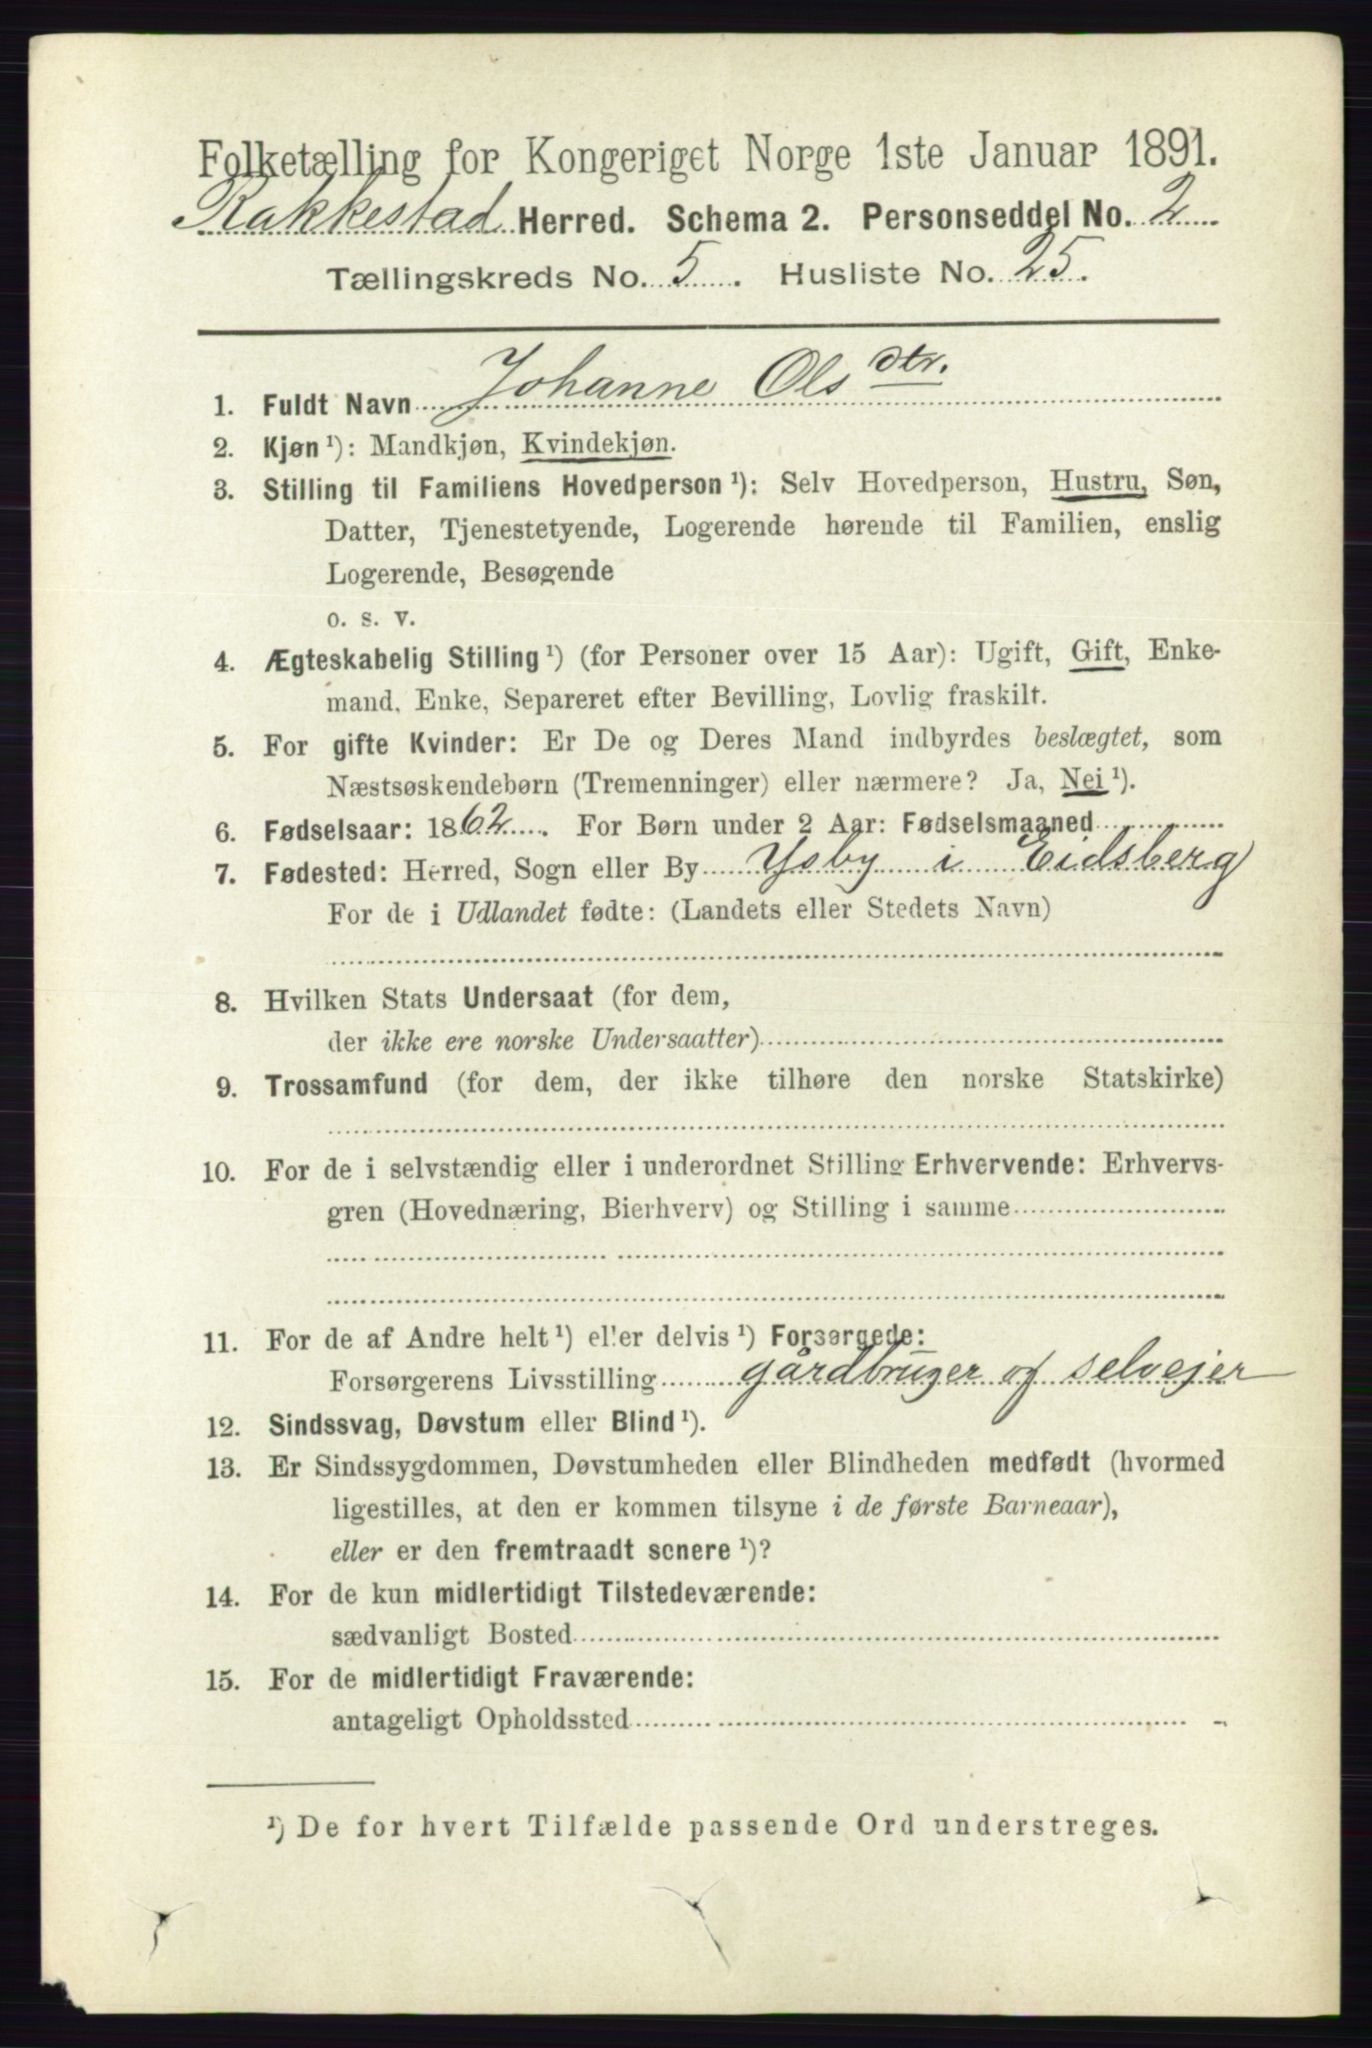 Folketælling for Kongeriget Norge 1ste Januar 1891.
Rakkestad Herred. Schema 2. Personseddel No. 2
Tællingskreds No. 5. Husliste No. 25.
1. Fuldt Navn Johanne Olsdtr.
2. Kjøn ¹): Mandkjøn, Kvindekjøn.
3. Stilling til Familiens Hovedperson ¹): Selv Hovedperson, Hustru, Søn,
Datter, Tjenestetyende, Logerende hørende til Familien, enslig
Logerende, Besøgende
o. s. v.
4. Ægteskabelig Stilling ¹) (for Personer over 15 Aar): Ugift, Gift, Enke-
mand, Enke, Separeret efter Bevilling, Lovlig fraskilt.
5. For gifte Kvinder: Er De og Deres Mand indbyrdes beslægtet, som
Næstsøskendebørn (Tremenninger) eller nærmere? Ja, Nei ¹).
6. Fødselsaar: 1862. For Børn under 2 Aar: Fødselsmaaned
7. Fødested: Herred, Sogn eller By Ysby i Eidsberg
For de i Udlandet fødte: (Landets eller Stedets Navn)
8. Hvilken Stats Undersaat (for dem,
der ikke ere norske Undersaatter)
9. Trossamfund (for dem, der ikke tilhøre den norske Statskirke)
10. For de i selvstændig eller i underordnet Stilling Erhvervende: Erhvervs-
gren (Hovednæring, Bierhverv) og Stilling i samme
11. For de af Andre helt ¹) eller delvis ¹) Forsørgede:
Forsørgerens Livsstilling gårdbruger og selvejer
12. Sindssvag, Døvstum eller Blind ¹).
13. Er Sindssygdommen, Døvstumheden eller Blindheden medfødt (hvormed
ligestilles, at den er kommen tilsyne i de første Barneaar),
eller er den fremtraadt senere ¹)?
14. For de kun midlertidigt Tilstedeværende:
sædvanligt Bosted
15. For de midlertidigt Fraværende:
antageligt Opholdssted
¹) De for hvert Tilfælde passende Ord understreges.